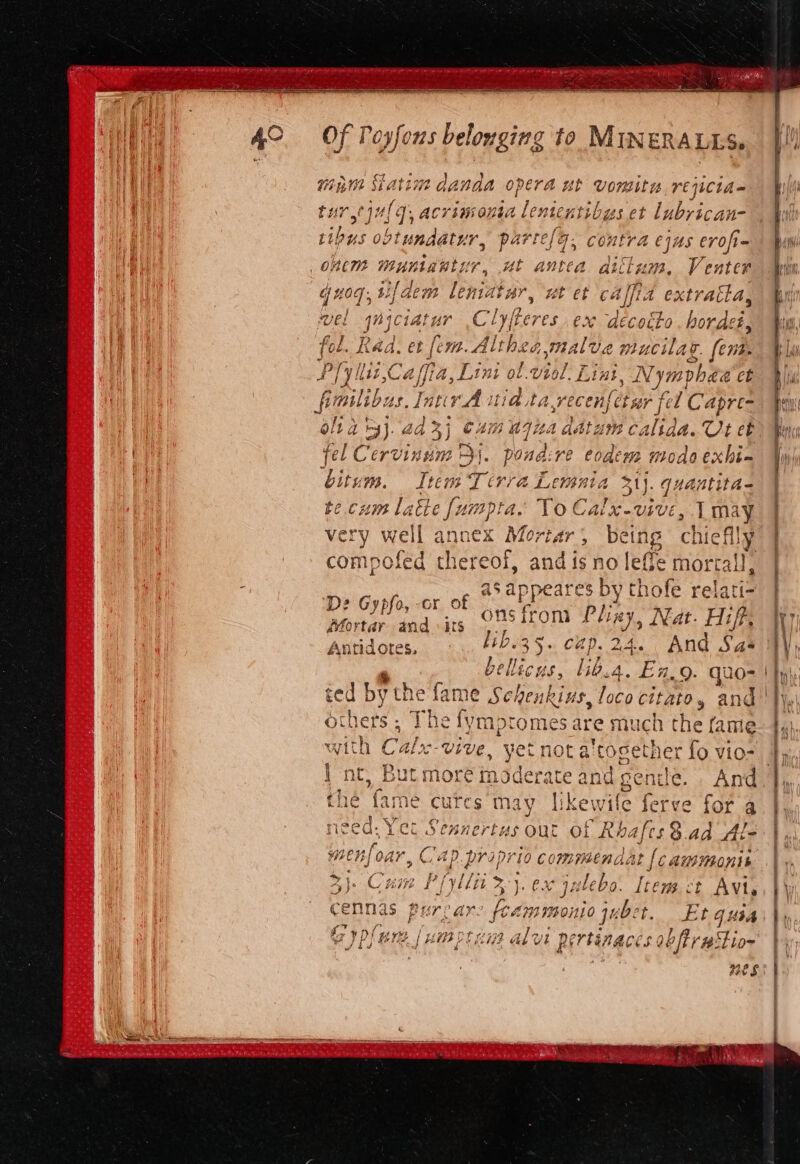 40 Of Poysons belonging to MINERALLS.
mùm statim danda opera ut vomitu rejicia-
tur,ejusq; acrimonia lenientibus et lubrican-
tibus obtundatur, partesq; contra ejus erosi-
onem muniantur, ut antea dictum. Venter
quoq; iisdem leniatur, ut et cassia extracta,
vel injiciatur Clysteres ex decocto hordei,
fol. Rad. et sem. Althææ,malvæ mucilag. sem.
Psyllii,Cassia, Lini ol.viol. Lini, Nymphææ et
similibus. Inter Antidota,recensetur fel Capre-
ad ʒj cum aqua datum calida. Ut et
fel Cervinum ℈j. pondere eodem modo exhi-
bitum. Item Terra Lemnia quantita-
te cum lacte sumpta. To Calx-vive, I may
very well annex Mortar; being chieflly
composed thereof, and is no lesse mortall,
De Gypso, or of
Mortar and its
Antidotes.
as appeares by those relati-
ons from Pliny, Nat. Hist.
lib.35. cap. 24. And Sa-
bellicus, lib.4. En.9. quo-
ted by the same Schenkius, loco citato, and
others; The symptomes are much the same
with Calx-vive, yet not altogether so vio-
l nt, But more moderate and gentle. And
the same cures may likewise serve for a
need. Yet Sennertus out of Rhases 8.ad Al-
mensoar, Cap.proprio commendat scammonii
ʒj. Cum Psyllii ʒj. ex julebo. Item et Avi-
cennas purgare scammonio jubet. Et quia
Gypsum sumptum alvi pertinaces obstructio-
nes